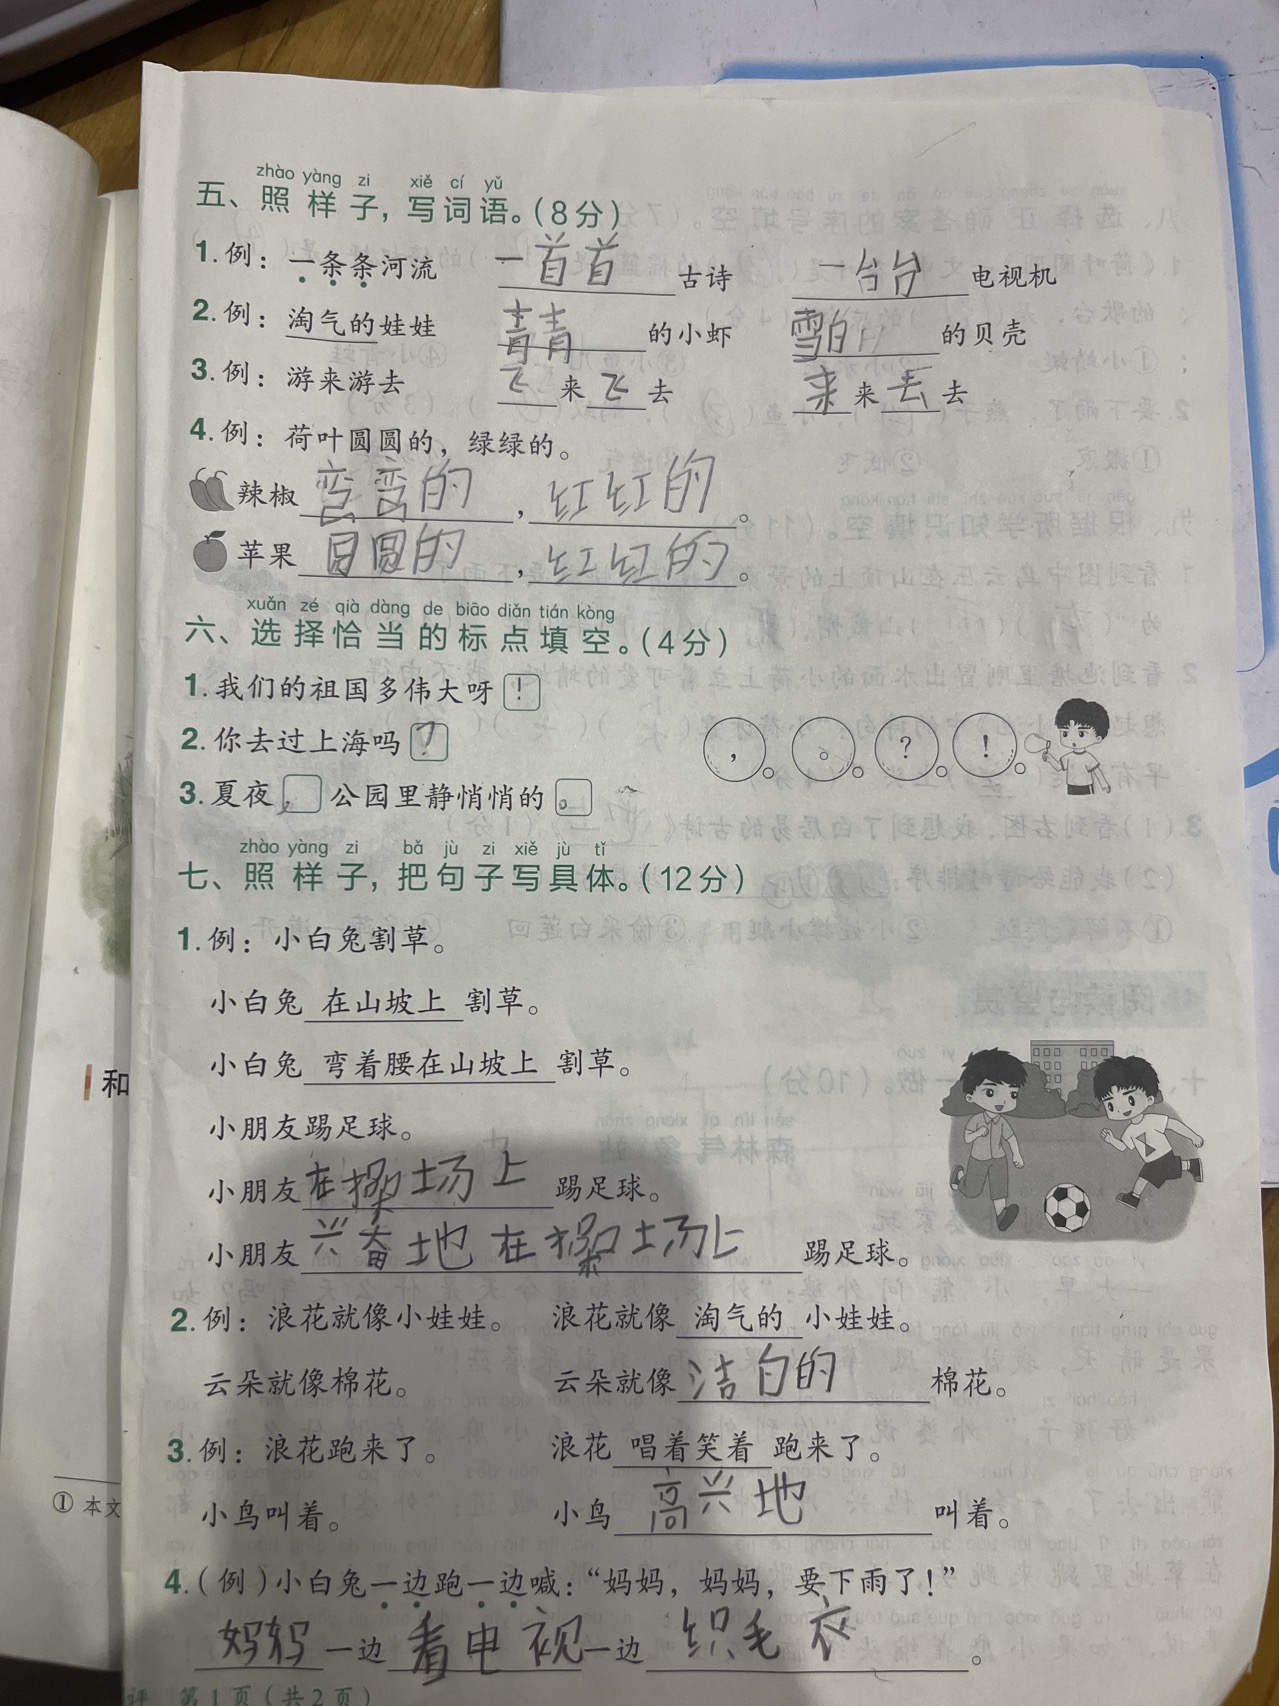 zhào yàng zi xiě cí yǔ
五、照样子，写词语。(8分)
1. 例：一条条河流 一首首古诗 一台台电视机
2. 例：淘气的娃娃 青青的小虾 雪白的贝壳
3. 例：游来游去 飞来飞去 来来去去
4. 例：荷叶圆圆的，绿绿的。
辣椒弯弯的，红红的。
苹果圆圆的，红红的。
xuǎn zé qià dàng de biāo diǎn tián kòng
六、选择恰当的标点填空。(4分)
1. 我们的祖国多伟大呀！
2. 你去过上海吗？
， 。 ？ ！
3. 夏夜，公园里静悄悄的。
zhào yàng zi bǎ jù zi xiě jù tǐ
七、照样子，把句子写具体。(12分)
1. 例：小白兔割草。
小白兔 在山坡上 割草。
小白兔 弯着腰在山坡上 割草。
小朋友踢足球。
小朋友在操场上踢足球。
小朋友兴奋地在操场上踢足球。
2. 例：浪花就像小娃娃。 浪花就像 淘气的 小娃娃。
云朵就像棉花。 云朵就像洁白的棉花。
3. 例：浪花跑来了。 浪花 唱着笑着 跑来了。
小鸟叫着。 小鸟高兴地叫着。
4. (例)小白兔一边跑一边喊：“妈妈，妈妈，要下雨了！”
妈妈一边看电视一边织毛衣。
第1页(共2页)
和
① 本文